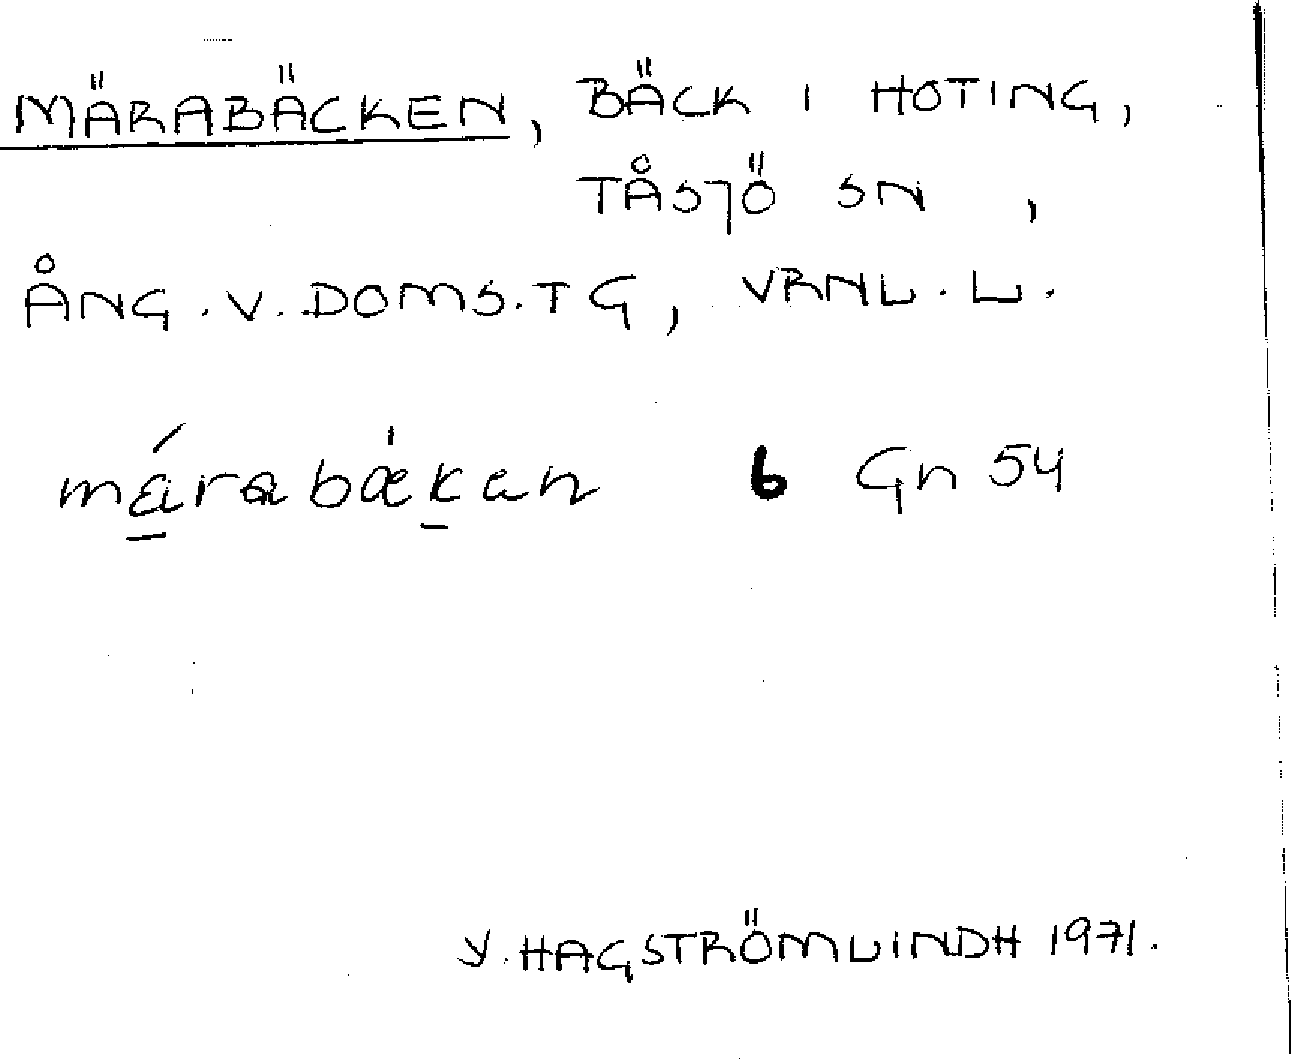 MÄRABÄCKEN, BÄCK I HOTING,
TÅSJÖ SN,
ÅNG. V. DOMS. TG, VRNL. L.
márabækan 6 Gn 54
Y. HAGSTRÖMLINDH 1971.